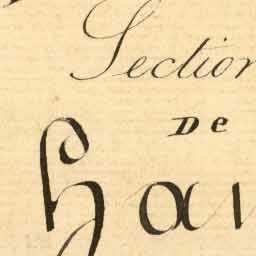 Section
De
Hav